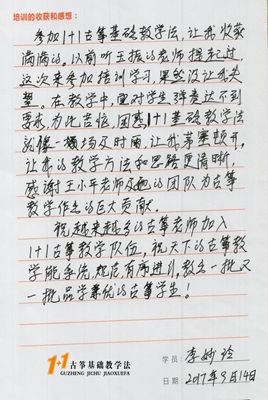 培训的收获和感想：
参加1+1古筝基础教学法，让我收获
满满的。以前听玉振的老师提起过，
这次来参加培训学习，果然没让我失
望。在教学中，面对学生弹奏达不到
要求，为此苦恼，因惑1+1基础教学法
就像一场及时雨，让我茅塞顿开，
让我的教学方法和思路更清晰。
感谢王小平老师及她的团队为古筝
教学作出的巨大贡献。
祝越来越多的古筝老师加入
1+1古筝教学队伍，祝天下的古筝教
学能系统、规范有序进行，教出一批又
一批品学兼优的古筝学生！
1+1古筝基础教学法
GUZHENG JICHU JIAOXUEFA
学员：李妙玲
日期：2017年9月14日